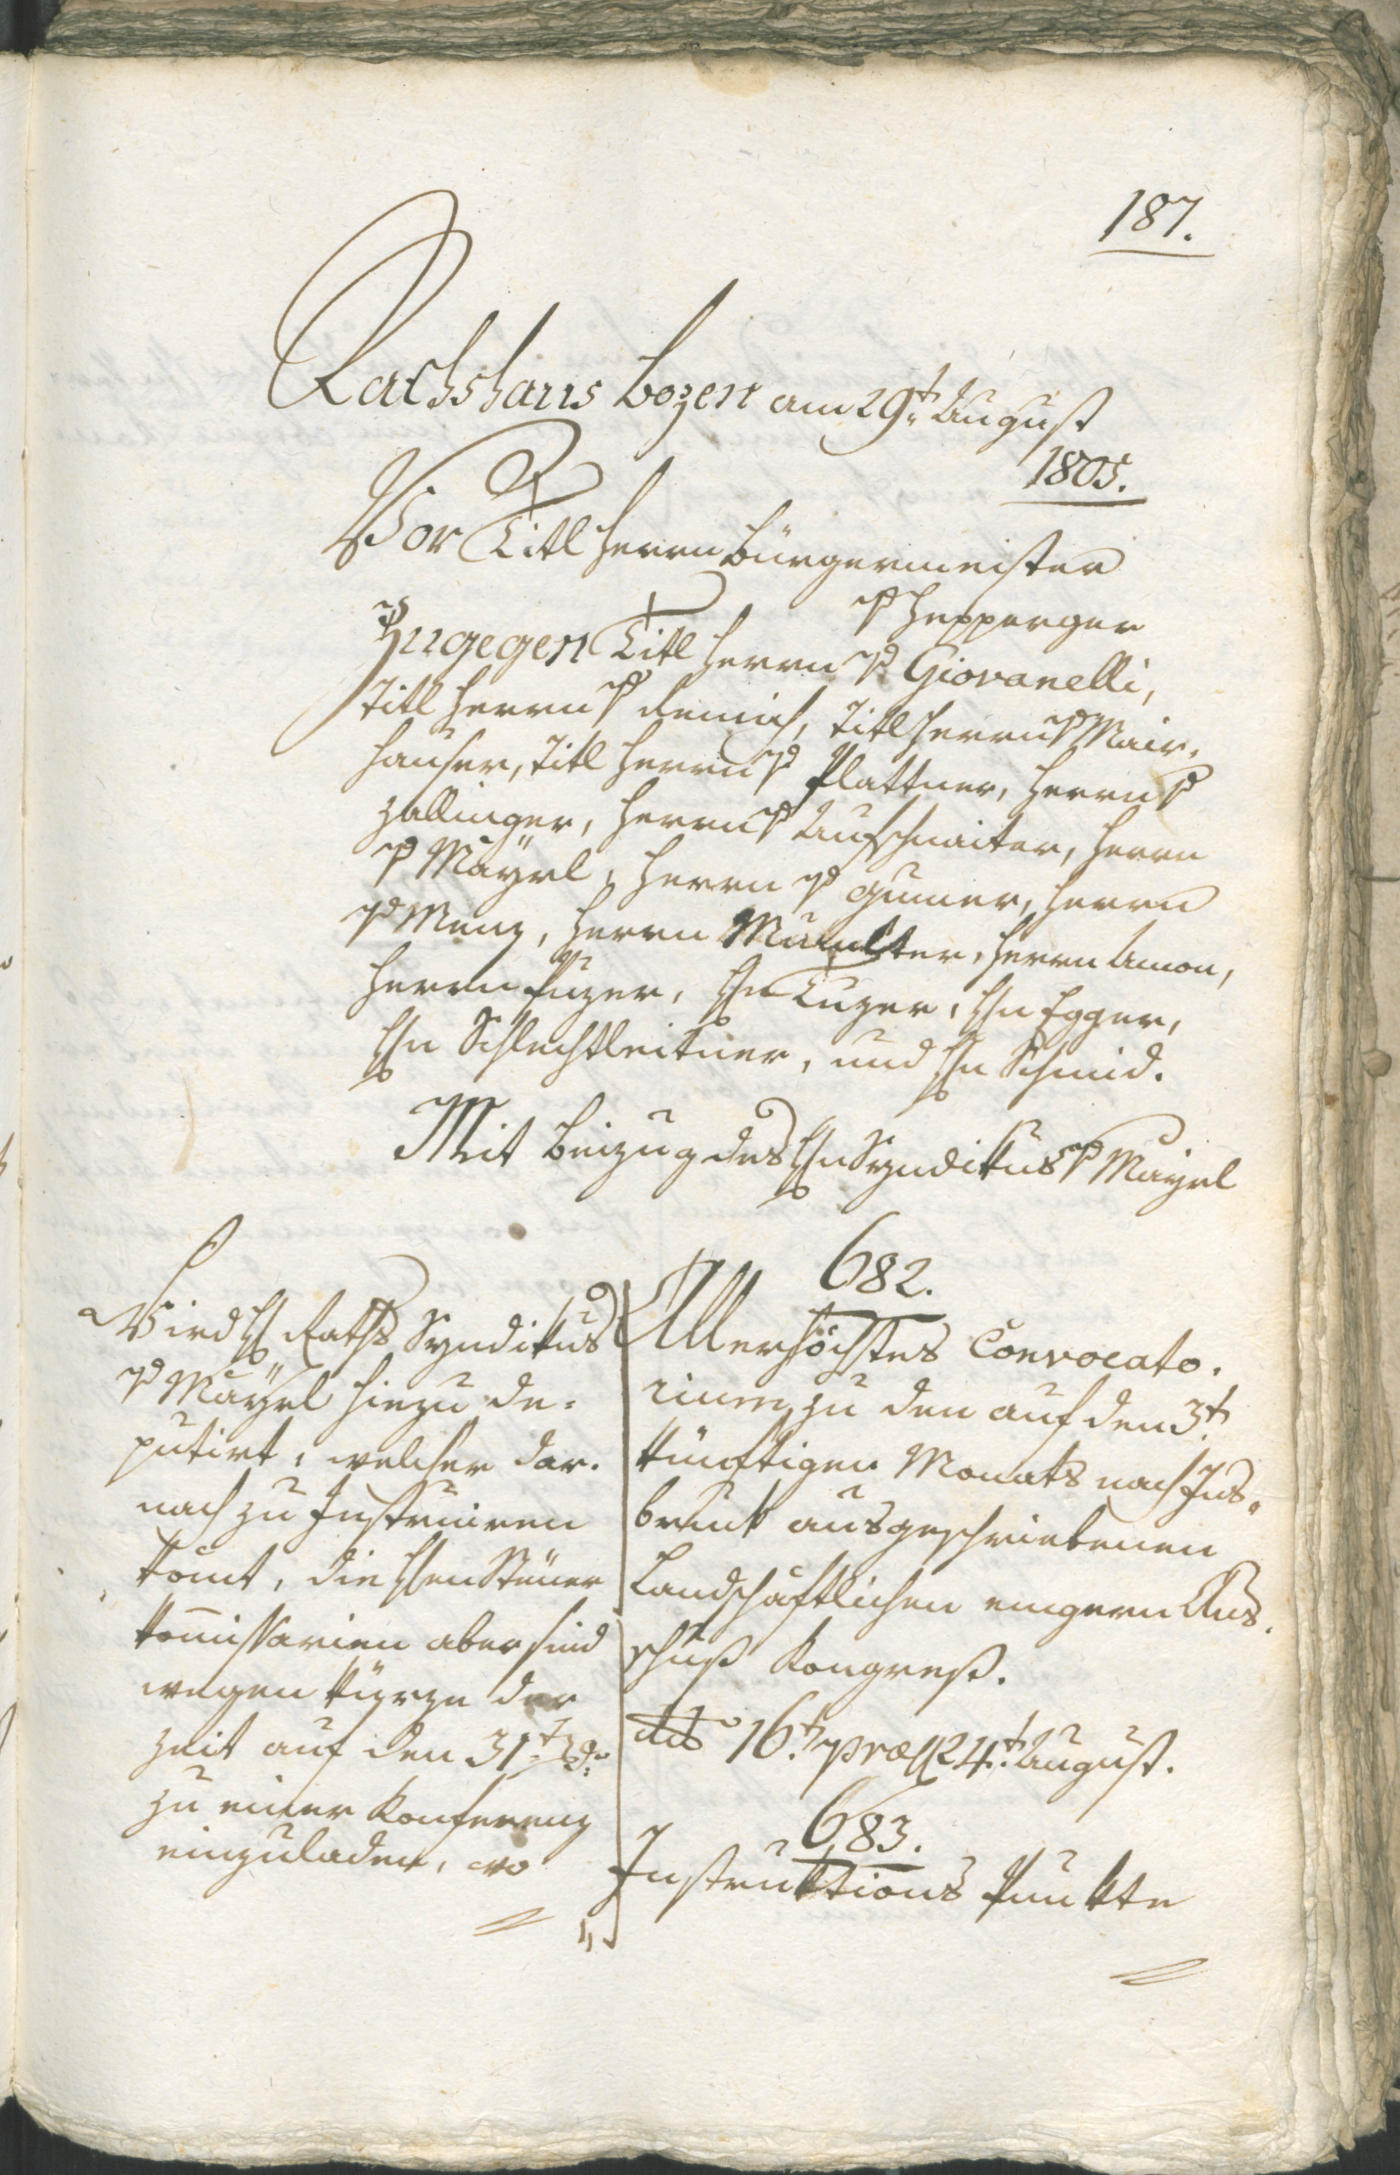 187.
Rathshaus Bozen am 29t. August
1805.
Vor Titl Herrn Bürgermeister
v Hepperger
Zugegen Titl Herrn v Giovanelli,
Titl Herrn v Remich, Titl Herrn v Mair¬
hauser, Titl Herrn v Plattner, Herrn v
Zallinger, Herrn v Aufschnaiter, Herrn
v Mayrl, Herrn v Gumer, Herrn
v Menz, Herrn Mumelter, Herrn Amon,
Herrn Puzer, Hn Tuzer, Hn Egger,
Hn Schlechtleitner, und Hn Schmid.
Mit Beizug des Hn Syndikus v Mayrl
682.
Allerhöchstes Convocato¬
rium zu den auf den 3t.
künftigen Monats nach Ins¬
bruk ausgeschriebenen
Landschaftlichen engern Aus¬
schuß Kongreß.
dto 16t. præs 24t. August.
Wird H Raths Syndikus
v Mayrl hiezu de¬
putirt, welcher dar¬
nach zu Instruiren
kömt, die Hen Steuer
Komissarien aber sind
wegen Kürze der
Zeit auf den 31t. d:
zu einer Konferenz
einzuladen, wo
683.
Instruktions Punkte